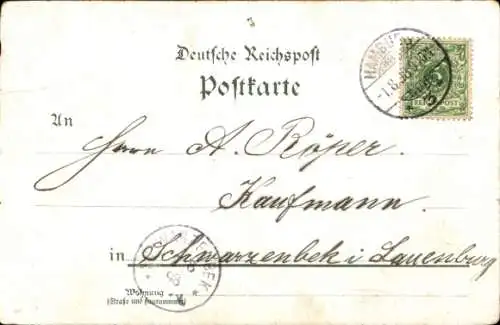 Deutsche Reichspost
Postkarte
HAMBURG
-1.8.
An
Herrn A. Röper.
Kaufmann.
in Schwarzenbek i. Lauenburg
Wohnung
(Straße und Hausnummer)